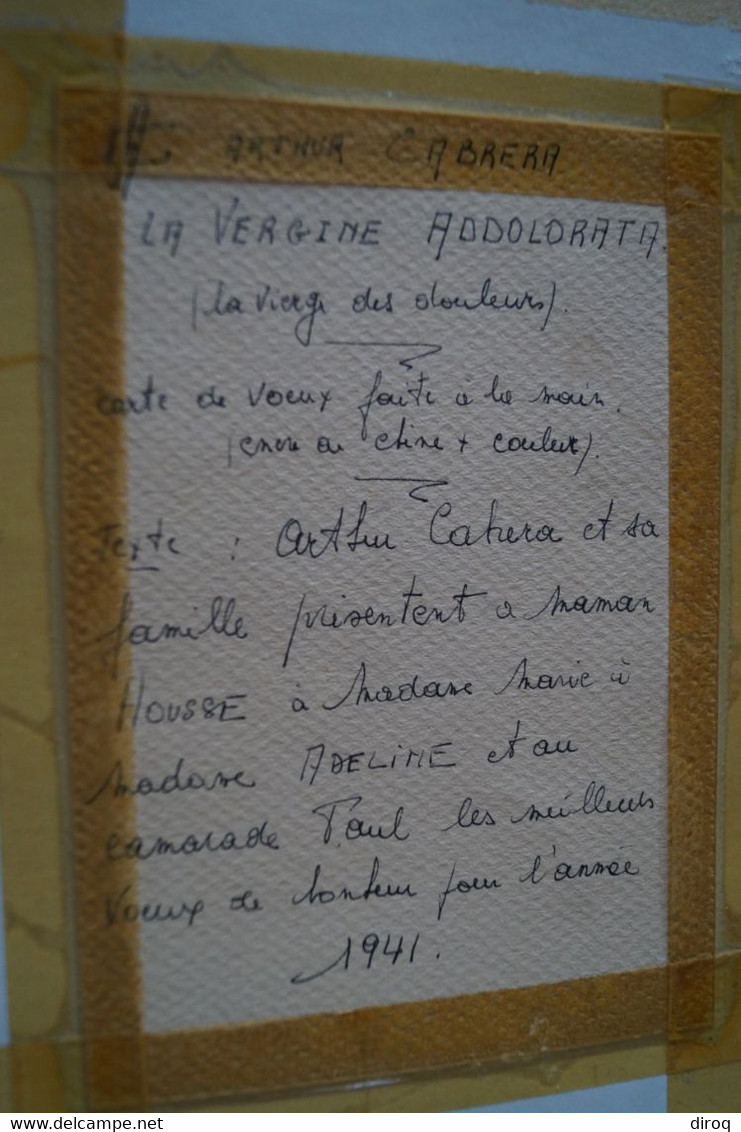 ARTHUR CABRERA
LA VERGINE ADDOLORATA.
(la vierge des douleurs).
carte de voeux faite à la main.
(encre de chine + couleur).
Texte : Arthur Cabrera et sa
famille présentent a maman
HOUSSE à Madame Marie à
Madame ADELINE et au
camarade Paul les meilleurs
voeux de bonheur pour l'année
1941.
diroq